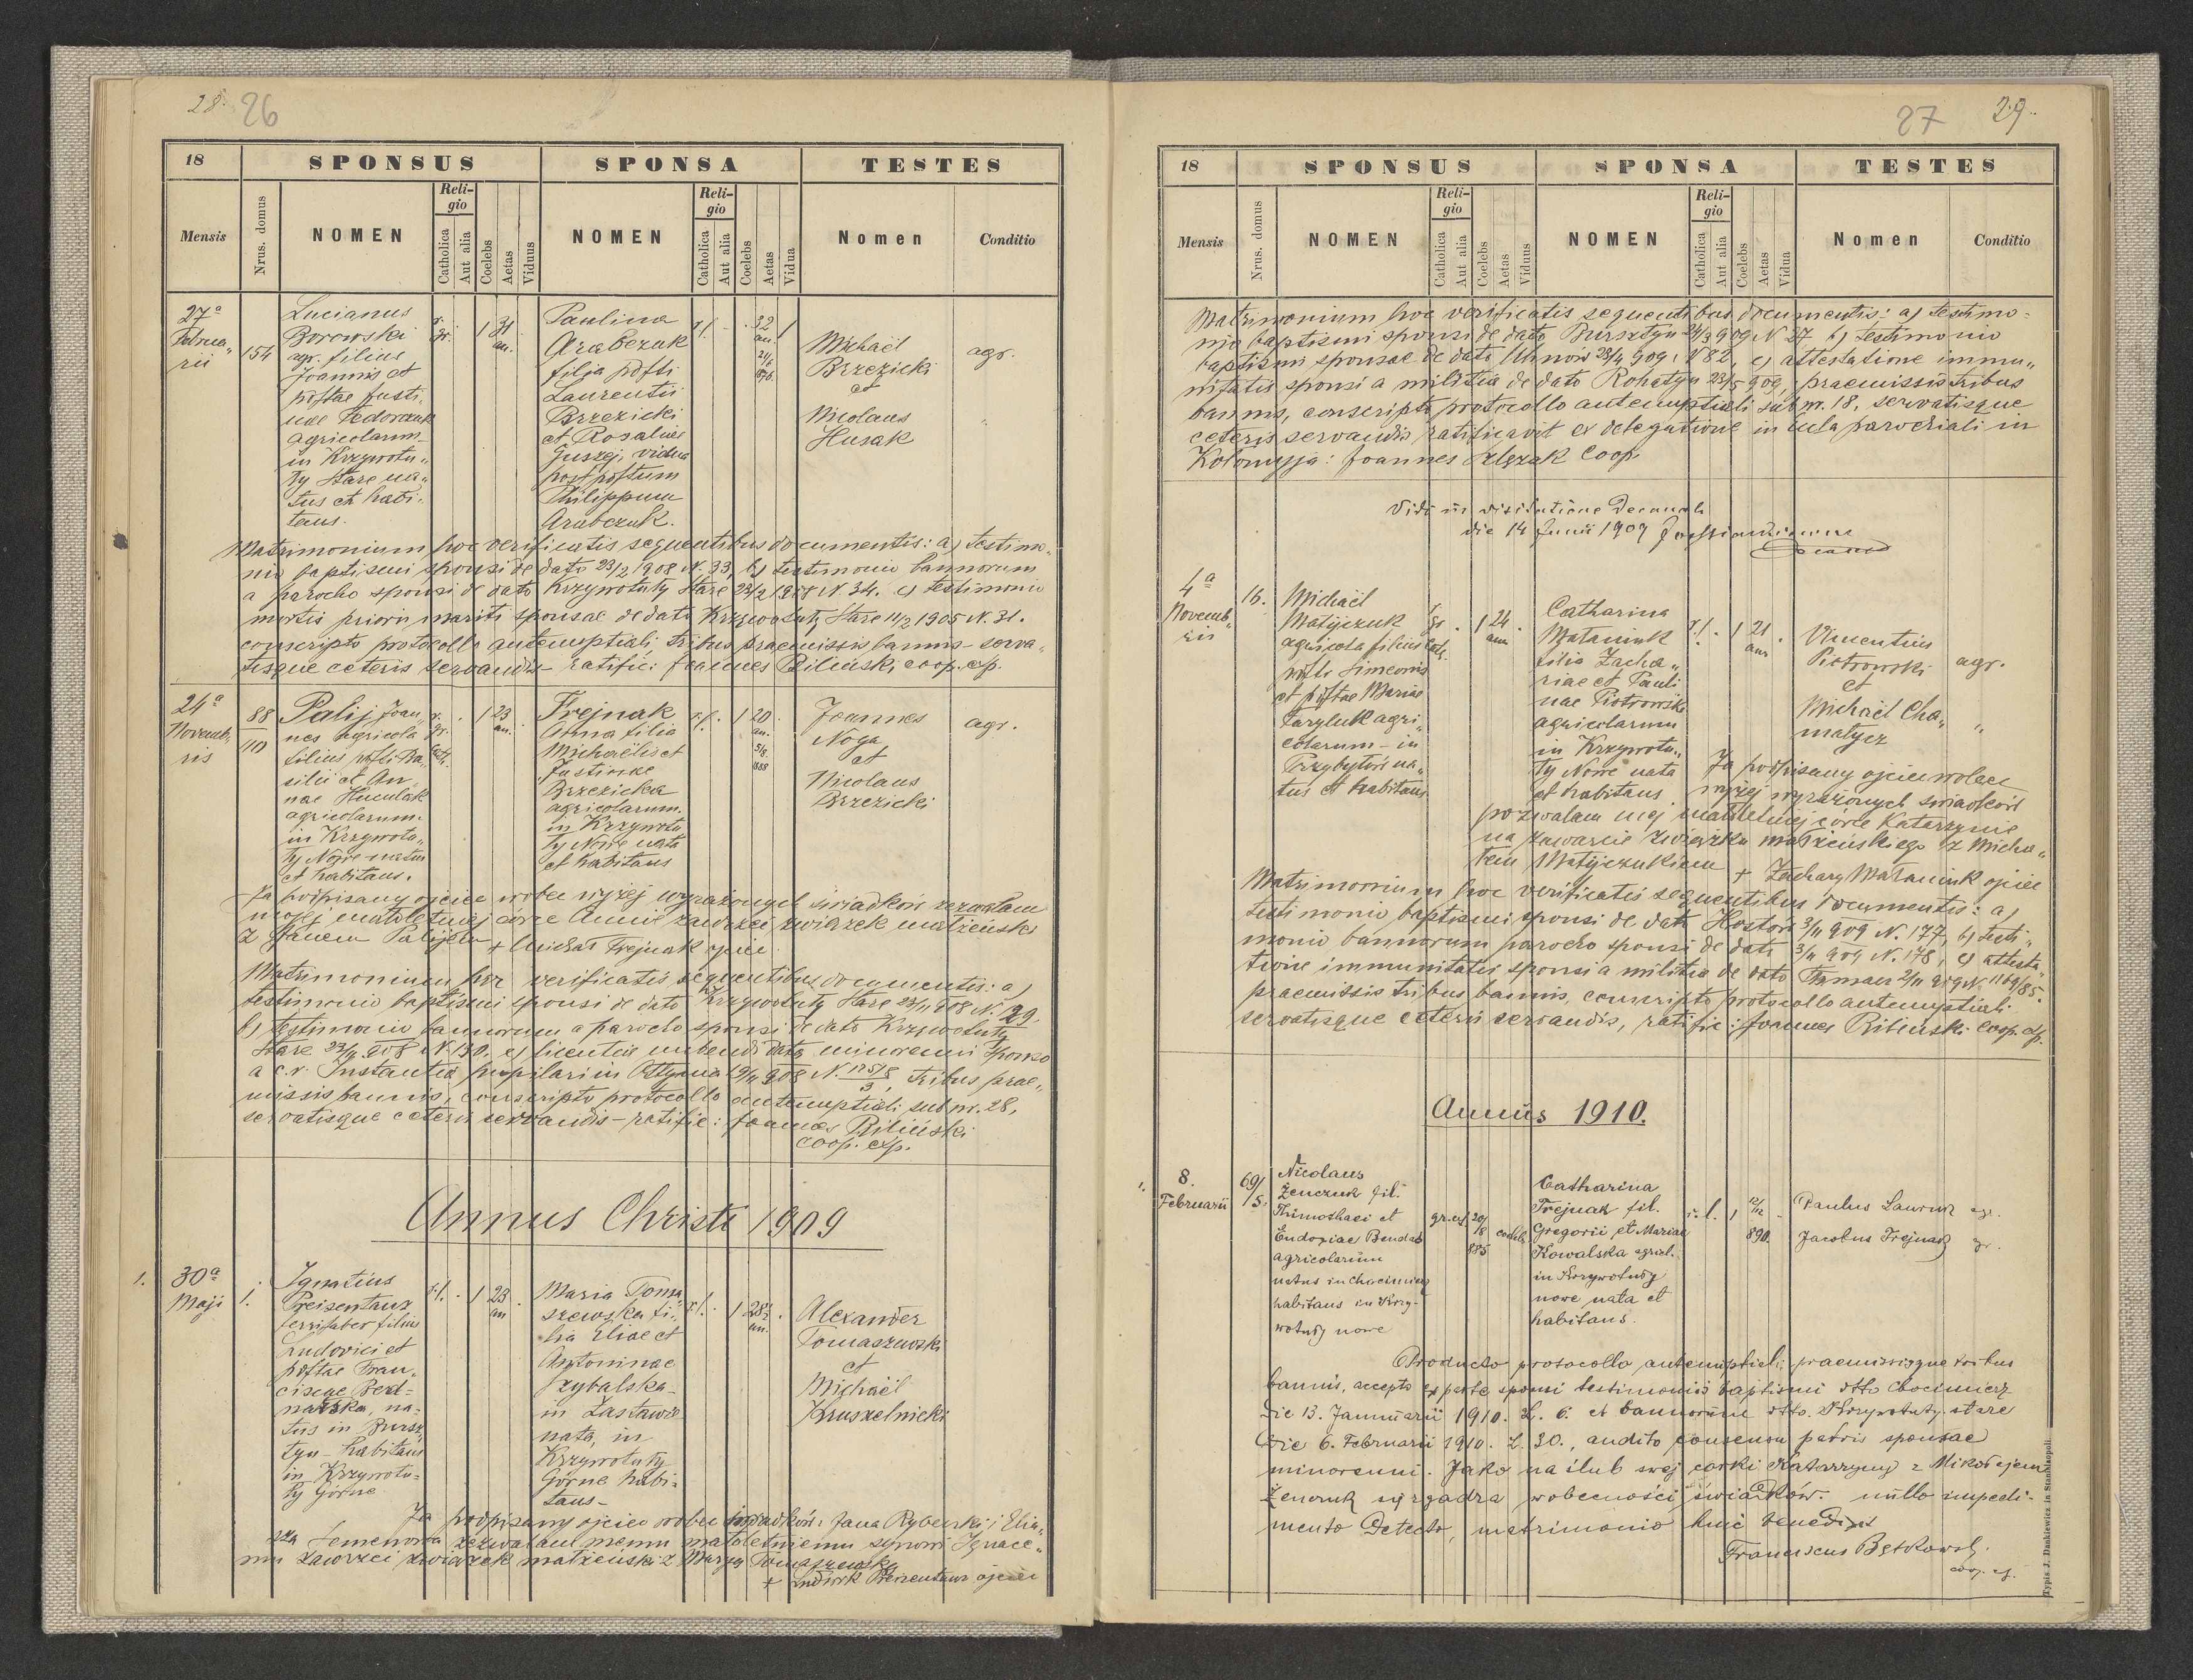 28. 26
18 SPONSUS SPONSA TESTES
Mensis Nrus. domus NOMEN Religio Catholica Aut alia Coelebs Aetas Viduus NOMEN Religio Catholica Aut alia Coelebs Aetas Vidua Nomen Conditio
27a
Februa„
rii
154
Lucianus
Borowski
agr. filius
Joannis et
poftae Justi-
nae Fedorczuk
agricolarum
in Krzywotu„
ty Stare na„
tus et habi-
tans.
r.
gr.
1 31
an.
Paulina
Arabczuk
filia pofti
Laurentii
Brzezicki
et Rosaliae
Guszej, vidua
post poftum
Philippum
Arabczuk.
r.l.
32
an.
1
Michaël
Brzezicki
et
Nicolaus
Husak
agr.
„
Matrimonium hoc verificatis sequentibus documentis: a) testimo„
nio baptismi sponsi de dato 23/2 1908 N. 33, b) testimonio bannorum
a parocho sponsi de dato Krzywotuty Stare 23/2 1908 N. 34. c) testimonio
mortis prioris mariti sponsae de dato Krzywotuty Stare 11/2 1905 N. 31.
conscripto protocollo antenuptiali, tribus praemissis bannis - serva„
tisque ceteris servandis - ratific: Joannes Biliński coop. exp.
24a
Novemb„
ris
88
110
Palij Joan„
nes agricola
filius pofti Ba„
silii et An„
nae Huculak
agricolarum
in Krzywotu„
ty Nowe natus
et habitans.
r.
gr.
cath.
1 23
an.
Frejnak
Anna filia
Michaëlis et
Justinae
Brzezicka
agricolarum
in Krzywotu„
ty Nowe nata
et habitans
r.l.
1 20
an.
5/8
888
Joannes
Noga
et
Nicolaus
Brzezicki
agr.
Ja podpisany ojciec wobec wyżej wyrażonych świadków zezwalam
mojej małoletniej córce Annie zawrzeć związek małżeński
z Janem Palijem + Michał Frejnak ojciec
Matrimonium hoc verificatis sequentibus documentis: a)
testimonio baptismi sponsi de dato Krzywotuty Stare 23/11 908 N. 29.
b) testimonio bannorum a parocho sponsi de dato Krzywotuty
Stare 23/11 908 N. 130. c) licentia nubendi data minorenni sponso
a c. r. Instantia pupilari in Ottynia 19/11 908 N. 125/8, tribus prae„
missis bannis, conscripto protocollo antenuptiali sub nr. 28,
servatisque ceteris servandis - ratific: Joannes Biliński
coop. exp.
Annus Christi 1909
1.
30a
Maji
1.
Ignatius
Preisentanz
ferrifaber filius
Ludovici et
poftae Fran„
ciscae Bed-
narska, na-
tus in Bursz„
tyn - habitans
in Krzywotu-
ty Górne
r.l.
1 23
an
Maria Toma
szewska fi„
lia Eliae et
Antoninae
Szybalska -
in Zastawie
nata, in
Krzywotuty
Górne habi-
tans -
r.l.
1 28½
an.
Alexander
Tomaszewski
et
Michaël
Kruszelnicki
Ja podpisany ojciec wobec świadków: Jana Ryberski i Elia„
sza Semenowa zezwalam memu małoletniemu synowi Ignace„
mu zawrzeć związek małżeński z Maryą Tomaszewską
+ Ludwik Preizentanz ojciec
27 29.
18 SPONSUS SPONSA TESTES
Mensis Nrus. domus NOMEN Religio Catholica Aut alia Coelebs Aetas Viduus NOMEN Religio Catholica Aut alia Coelebs Aetas Vidua Nomen Conditio
Matrimonium hoc verificatis sequentibus documentis: a) testimo-
nio baptismi sponsi de dato Bursztyn 24/3 909 N 27 b) testimonio
baptismi sponsae de dato Uhnów 28/4 909. N 82, c) attestatione immu„
nitatis sponsi a militia de dato Rohatyn 23/5 909, praemissis tribus
bannis, conscripto protocollo antenuptiali sub nr. 18, servatisque
ceteris servandis ratificavit ex delegatione in aula parochiali in
Kołomyja: Joannes Coop.
Vidi in visitatione Decanali
die 14 Junii 1909
Decanus
4a
Novemb„
ris
16.
Michaël
Matijczuk
agricola filius
pofti Simeonis
et poftae Mariae
Taryluk agri„
colarum - in
Przybyłów na„
tus et habitans
gr
cath.
1 24
ann
Catharina
Mataniuk
filia Zacha„
riae et Pauli
nae Piotrowska
agricolarum
in Krzywotu„
ty Nowe nata
et habitans
r.l.
1 21
ann
Vincentius
Piotrowski
et
Michaël Cha„
matycz
agr.
„
Ja podpisany ojciec wobec
wyżej wyrażonych świadków
pozwalam mej małoletniej córce Katarzynie
na zawarcie związku małżeńskiego z Micha„
łem Matijczukiem + Zachary Mataniuk ojciec
Matrimonium hoc verificatis sequentibus documentis: a)
testimonio baptismi sponsi de dato Hostów 3/11 909 N. 177, b) testi„
monio bannorum parocho sponsi de dato 3/11 909 N. 178, c) attesta„
tione immunitatis sponsi a militia de dato Tłumacz 2/11 909 N. 1169/85.
praemissis tribus bannis, conscripto protocollo antenuptiali
servatisque ceteris servandis, ratific: Joannes Biliński coop. exp.
Annus 1910.
1.
8.
Februarii
69/
15.
Nicolaus
Zenczuk fil.
Thimothaei et
Eudoxiae Bendas
agricolarum
natus in Chocimierz
habitans in Krzy-
wotuły nowe
gr. cat
20/
8
885
coelebs
Catharina
Frejnak fil.
Gregorii et Mariae
Kowalska agricl.
in Krzywotuły
nowe nata et
habitans.
r. l.
1
12/
12
890.
Paulus Lawruk agr.
Jacobus Frejnak gr.
Producto protocollo antenuptiali, praemissisque tribus
bannis, accepto ex parte sponsi testimonio baptismi dtto Chocimierz
die 13. Januarii 1910. L. 6. et bannorum dtto. Krzywotuły stare
die 6. Februarii 1910. L. 30., audito consensu patris sponsae
minorenni. Jako na ślub swej córki Katarzyny z Mikołajem
Zenczuk się zgadza w obecności świadków. nullo impedi-
mento detecto, matrimonio huic benedixit
Franciscus Bętkowski.
coop. ex.
Typis J. Dankiewicz in Stanislaopoli.